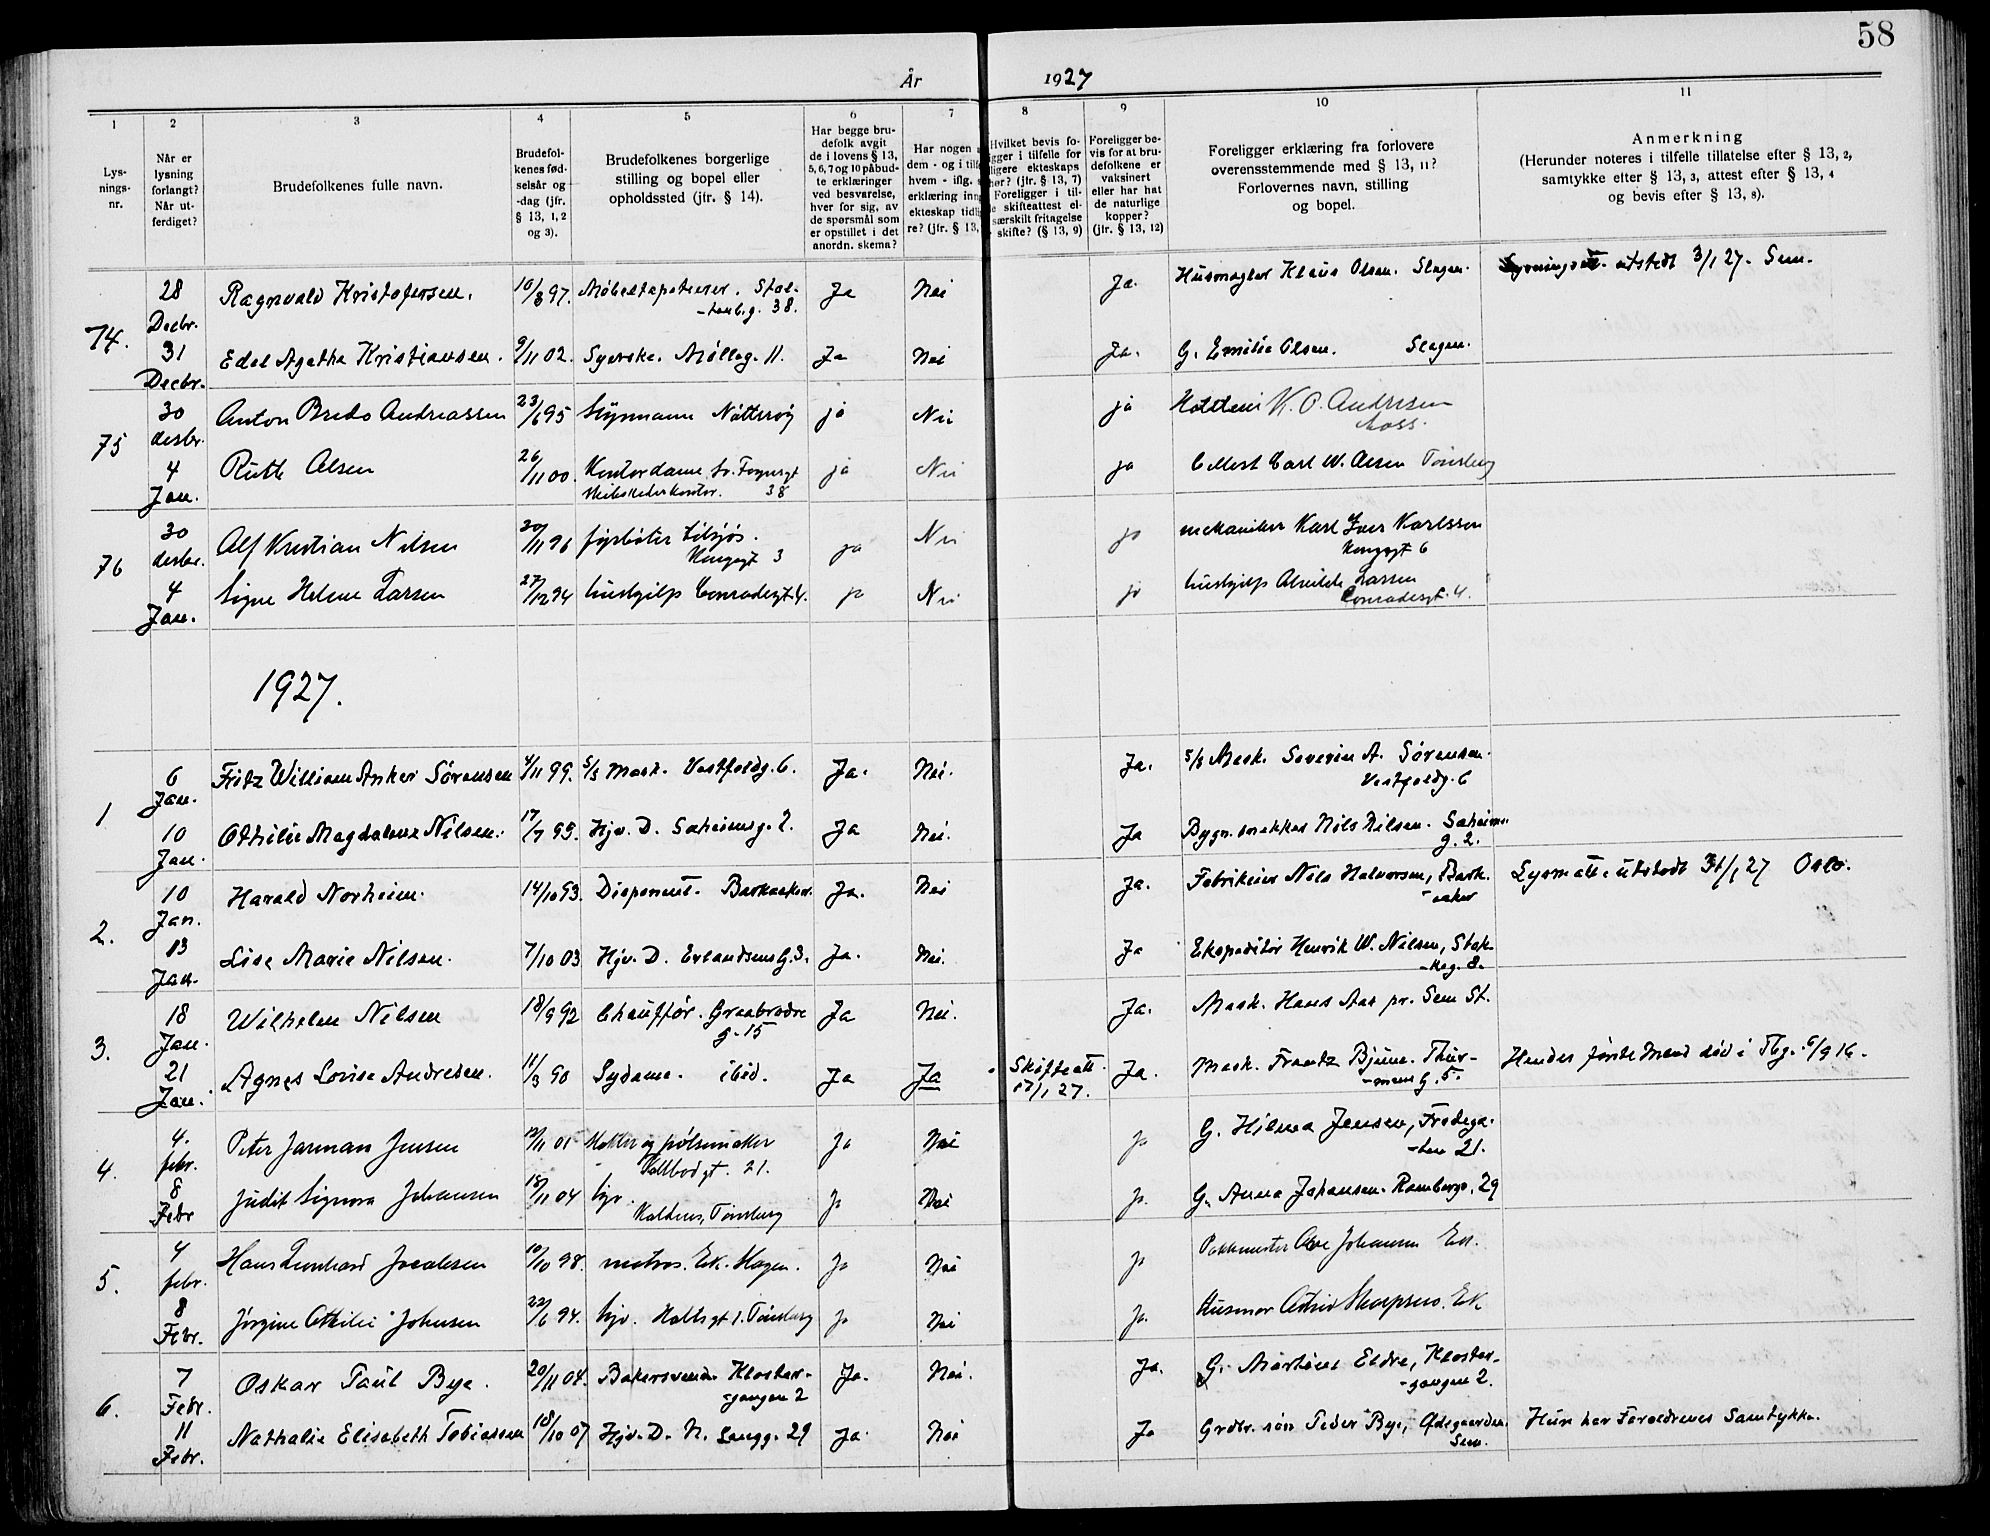 58
År 1927
1 2 3 4 5 6 7 8 9 10 11
Lys-
nings-
nr.
Når er
lysning
forlangt?
Når ut-
ferdiget?
Brudefolkenes fulle navn.
Brudefol-
kenes fød-
selsår og
-dag (jfr.
§ 13, 1, 2
og 3).
Brudefolkenes borgerlige
stilling og bopel eller
opholdssted (jfr. § 14).
Har begge bru-
defolk avgit
de i lovens § 13,
5, 6, 7 og 10 påbud-
te erklæringer
ved besvarelse,
hver for sig, av
de spørsmål som
er opstillet i det
anordn. skema?
Har nogen
dem - og i tilf
hvem - iflg.
erklæring inn
ekteskap tidli
re? (jfr. § 13,
Hvilket bevis fo-
igger i tilfelle for
ligere ekteskaps
hør? (jfr. § 13, 7)
Foreligger i til-
e skifteattest el-
særskilt fritagelse
skifte? (§ 13, 9)
Foreligger be-
vis for at bru-
defolkene er
vaksinert
eller har hat
de naturlige
kopper?
(jfr. § 13, 12)
Foreligger erklæring fra forlovere
overensstemmende med § 13, 11?
Forlovernes navn, stilling
og bopel.
Anmerkning
(Herunder noteres i tilfelle tillatelse efter § 13, 2,
samtykke efter § 13, 3, attest efter § 13, 4
og bevis efter § 13, 8).
74.
28 Decbr. Ragnvald Kristofersen. 10/8 97. Møbeltapetserer. Stol-
-tenb.g. 38. Ja Nei Ja. Husmægler Klaus Olsen. Slagen. utstedt 3/1 27. Sem.
31 Decbr. Edel Agathe Kristiansen. 9/11 02. Syerske. Mølleg. 11. Ja Nei Ja. G. Emilie Olsen. Slagen.
75
30 desbr. Anton Bredo Andreassen 23/6 95 Styrmann Nøtterøy ja Nei ja K. O. Andresen
Moss.
4 Jan. Ruth Olsen 26/11 00. Kontordame Sv. Foynsgt
38 ja Nei ja Carl W. Olsen Tønsberg
76
30 desbr. Alf Kristian Nilsen 20/11 96 fyrbøter tilsjøs.
Kongsgt 3 ja Nei ja mekaniker Karl Iver Karlsson
Kongsgt 6
4 Jan. Signe Helene Larsen 27/12 94 hushjelp Conradisgt. 4. ja Nei ja hushjelp Alvilde Larsen
Conradisgt. 4.
1927.
1
6 Jan. Fritz William Anker Sörensen 4/11 99. S/S Mask. Vestfoldg. 6. Ja. Nei. Ja. S/S Mask. Severin A. Sørensen.
Vestfoldg. 6
10 Jan. Othilie Magdalena Nilsen. 17/7 95. Hjv. D. Solheimsg. 2. Ja Nei. Ja Bygn.snekker Nils Nilsen. Solheims-
g. 2.
2.
10 Jan. Harald Norheim. 14/10 93. Disponent. Barkaaker. Ja. Nei Ja. Fabrikeier Nils Halvorsen, Bark-
-aaker Lysn.att. utstedt 31/1 27 Oslo.
13 Jan. Lise Marie Nilsen. 7/10 03 Hjv. D. Erlandsens G. 3. Ja. Nei. Ja Ekspeditør Henrik W. Nilsen, Stok-
-keg. 8.
3.
18 Jan. Wilhelm Nilsen 18/9 92 Chauffør. Graabrødre
g. 15 Ja Nei. Ja. Mask. Hans Aas pr. Sem St.
21 Jan. Agnes Lovise Andresen. 11/3 90 Sydame. ibid. Ja Ja Skifteatt.
17/1 27. Ja. Mask. Frantz Bjune. Thur-
-manns G. 5. Hendes første Mand død i Tbg. 6/9 16.
4.
4. febr. Peter Jarman Jensen 12/11 01 Slakter og pølsemaker
Vallbodgt. 21. Ja Nei ja G. Hilma Jensen, Fredega-
-ten 21.
8 Febr Judit Signora Johansen 18/11 04 hjv.
Kaldnes, Tønsberg Ja Nei ja. G. Anna Johansen. Rambergv. 29
5.
4 febr. Hans Leonhard Jacobsen 10/10 98. matros. Ek. Slagen. Ja Nei ja Pakkmester Ole Johansen Ek.
8 Febr. Jørgine Othilie Johnsen 22/6 94. hjv. Hallsgt 1. Tønsberg Ja Nei ja. Husmor Astrid Ek
6.
7 Febr. Oskar Paul Bye. 20/11 04. Bakersvend. Kloster-
-gangen 2 Ja. Nei. Ja. G. Martine Eldre, Kloster-
-gangen 2.
11 Febr. Nathalie Elisabeth Tobiassen 18/10 07 Hjv. D. N. Langg. 29 Ja Nei Ja Grdbr. søn Peder Bye, Ødegaarden
Sem. Hun har Forældrenes Samtykke.